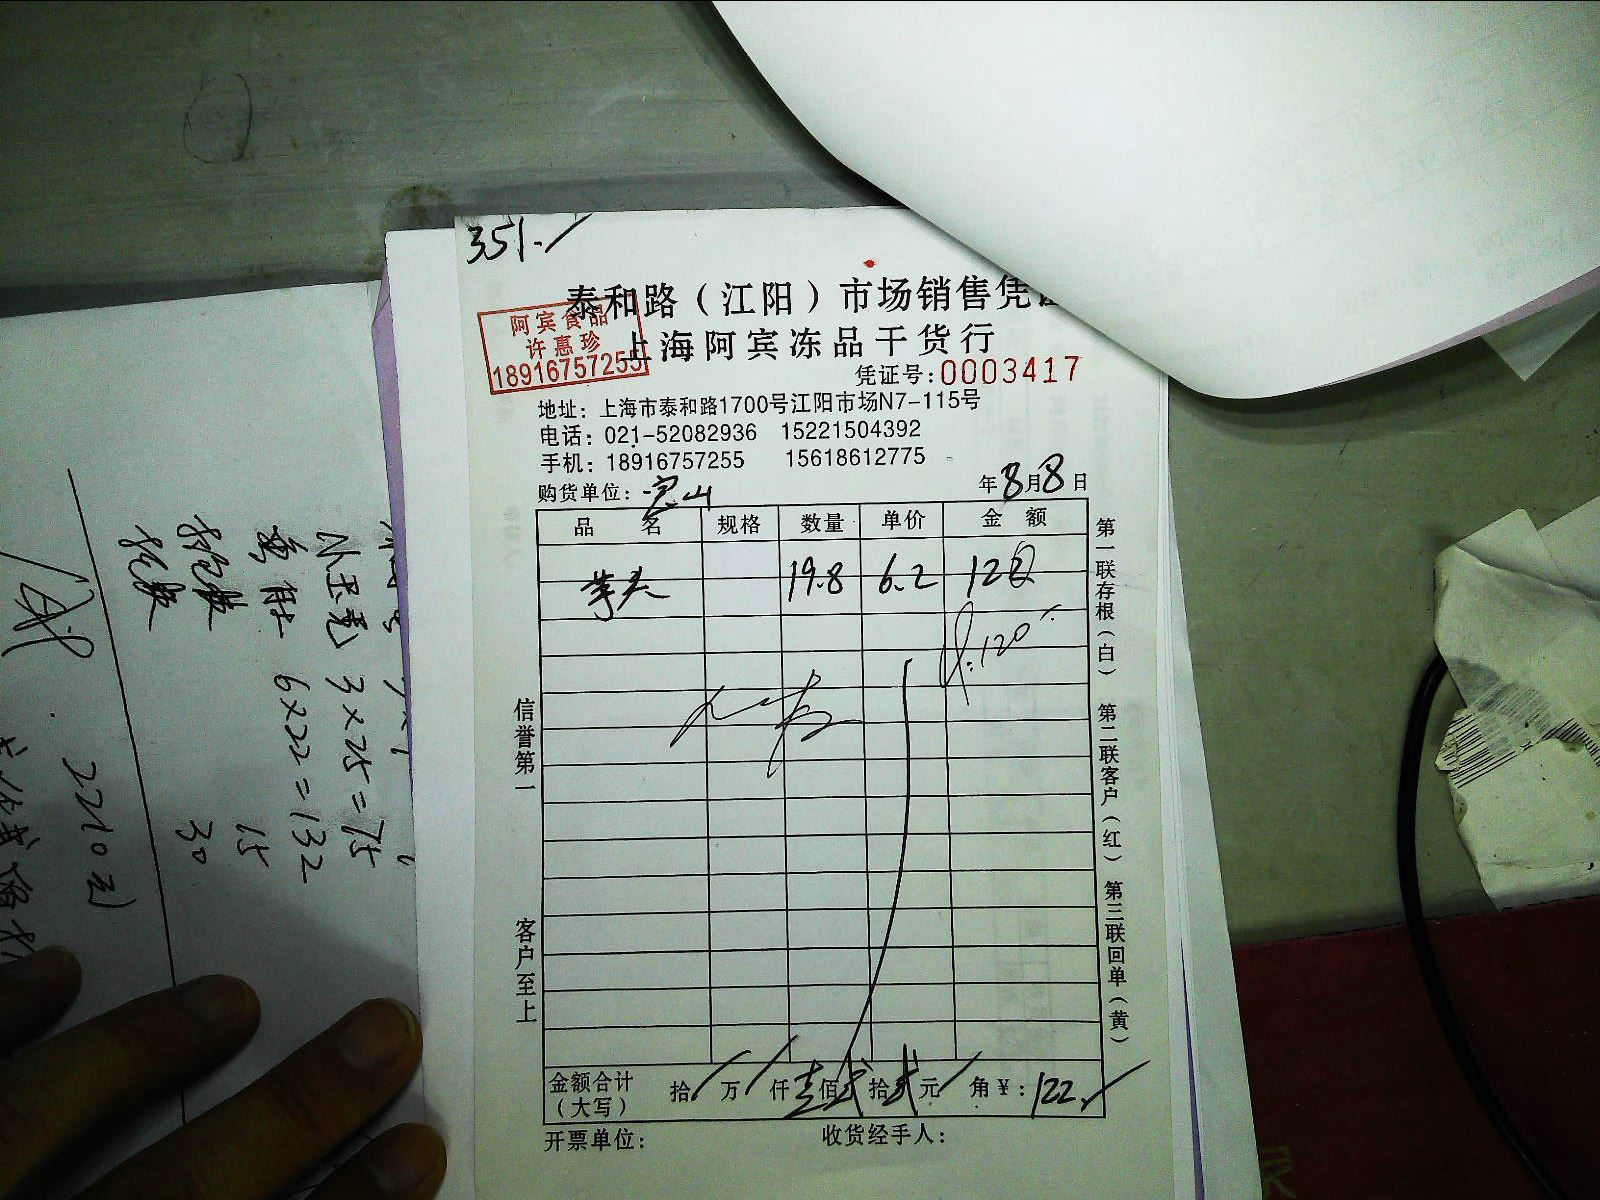 351.
泰和路（江阳）市场销售凭证
阿宾食品
许惠珍
18916757255
上海阿宾冻品干货行
凭证号：0003417
地址：上海市泰和路1700号江阳市场N7-115号
电话：021-52082936 15221504392
手机：18916757255 15618612775
购货单位：宝山
年8月8日
品名 规格 数量 单价 金额
芋头 19.8 6.2 122
120
信誉第一
客户至上
第一联存根（白） 第二联客户（红） 第三联回单（黄）
金额合计（大写） 拾 万 仟壹佰贰拾贰元 角 ¥：122.
开票单位：
收货经手人：
3×25=75
6×22=132
15
30
2210